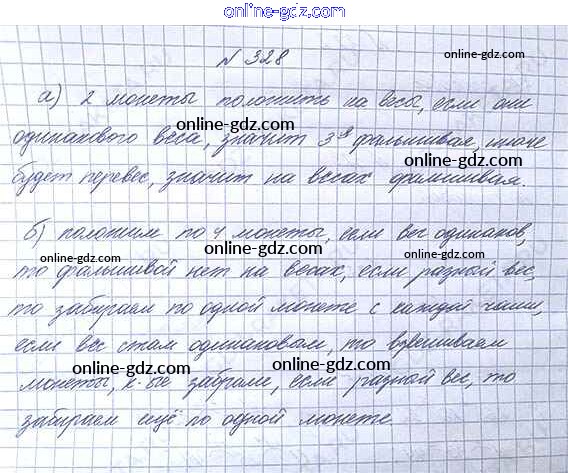 online-gdz.com
№ 328
online-gdz.com
а) 2 монеты положить на весы, если они
online-gdz.com
одинакового веса, значит 3я фальшивая, иначе
online-gdz.com
будет перевес, значит на весах фальшивая.
б) положим по 4 монеты, если вес одинаков,
online-gdz.com
online-gdz.com
то фальшивой нет на весах, если разный вес,
то забираем по одной монете с каждой чаши,
online-gdz.com
если вес стал одинаковым, то взвешиваем
online-gdz.com
монеты, к-ые забрали, если разной вес, то
online-gdz.com
забираем ещё по одной монете.
online-gdz.com